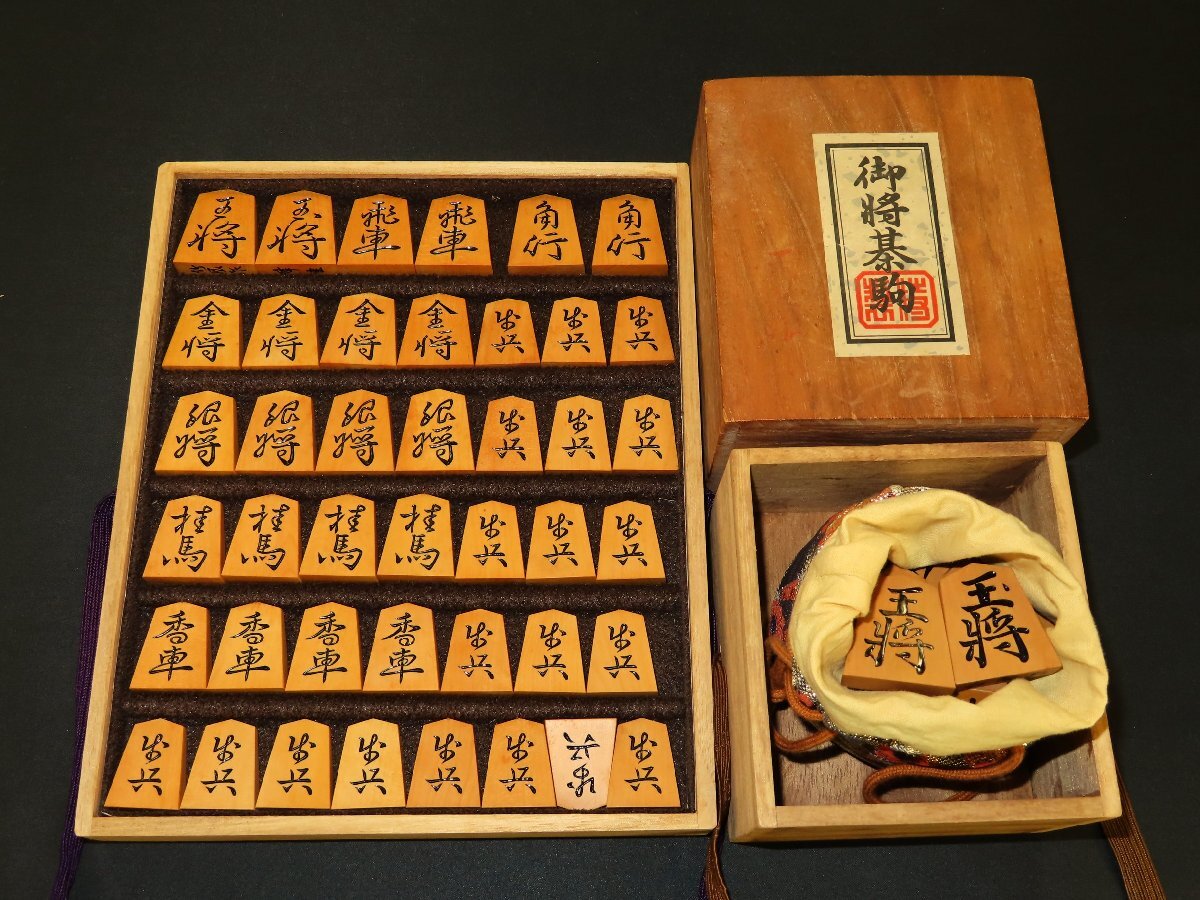 玉将 玉将 飛車 飛車 角行 角行
金将 金将 金将 金将 歩兵 歩兵 歩兵
銀将 銀将 銀将 銀将 歩兵 歩兵 歩兵
桂馬 桂馬 桂馬 桂馬 歩兵 歩兵 歩兵
香車 香車 香車 香車 歩兵 歩兵 歩兵
歩兵 歩兵 歩兵 歩兵 歩兵 歩兵 歩兵 歩兵
御将棊駒
王将 王将